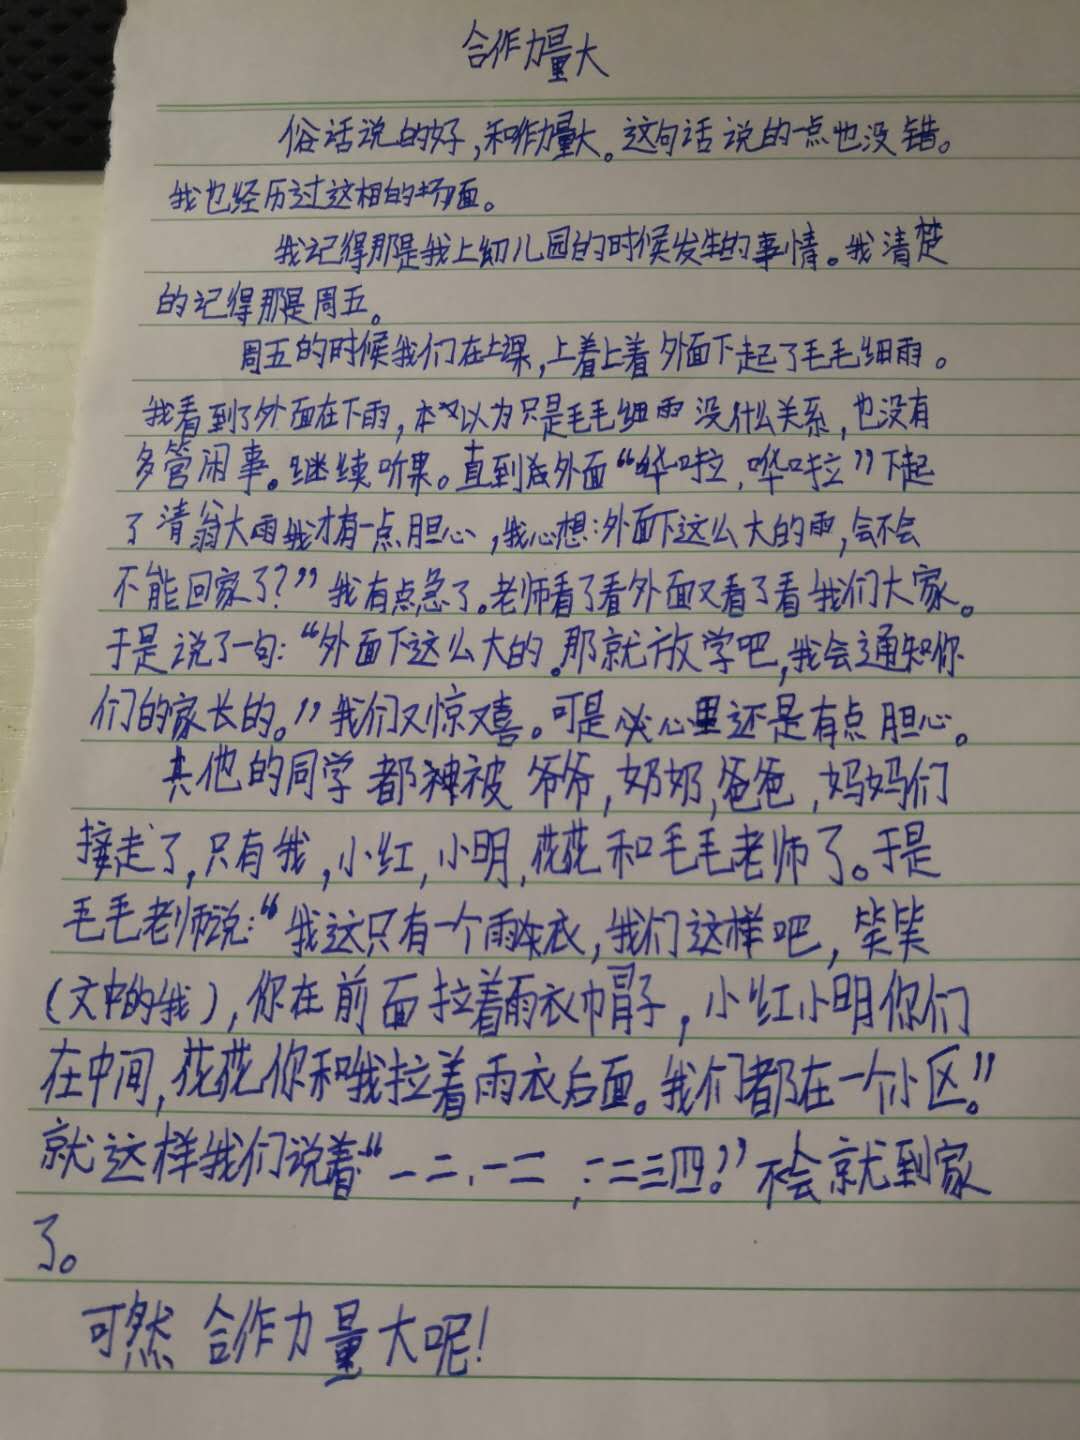 合作力量大
俗话说的好，和作力量大。这句话说的一点也没错。
我也经历过这相的场面。
我记得那是我上幼儿园的时候发生的事情。我清楚
的记得那是周五。
周五的时候我们在上课，上着上着外面下起了毛毛细雨。
我看到了外面在下雨，本以为只是毛毛细雨没什么关系，也没有
多管闲事。继续听果。直到外面“哗啦，哗啦”下起
了清翁大雨我才有一点胆心，我心想：外面下这么大的雨，会不会
不能回家了？”我有点急了。老师看了看外面又看了看我们大家。
于是说了一句：“外面下这么大的。那就放学吧，我会通知你
们的家长的。”我们又惊又喜。可是心里还是有点胆心。
其他的同学都被爷爷，奶奶，爸爸，妈妈们
接走了，只有我，小红，小明，花花和毛毛老师了。于是
毛毛老师说：“我这只有一个雨衣，我们这样吧，笑笑
（文中的我），你在前面拉着雨衣帽子，小红小明你们
在中间，花花你和我拉着雨衣后面。我们都在一个小区。”
就这样我们说着“一二，一二，一二三四。”不会就到家
了。
可然合作力量大呢！